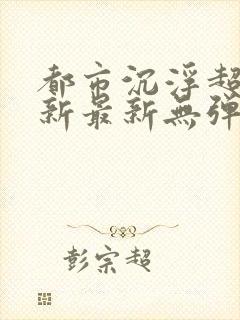 都市沉浮超
新最新無弹
彭宗超